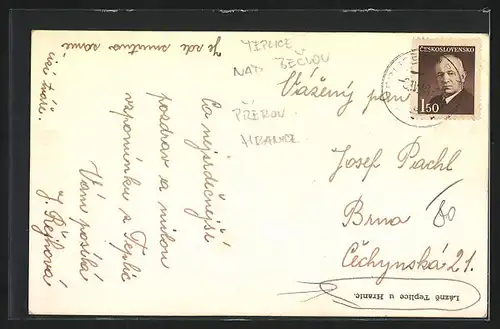 Je zde smutno samé
cizí tváře.
Co nejsrdečnejší
pozdrav a milou
vzpomínku z Teplic
Vám posílá
J. Rejhová
TEPLICE
NAD BEČVOU
PŘEROV
HRANICE
ČESKOSLOVENSKO
1.50
Vážený pan
Josef Pachl
Brno
Čechynská 21.
Lázně Teplice u Hranic.